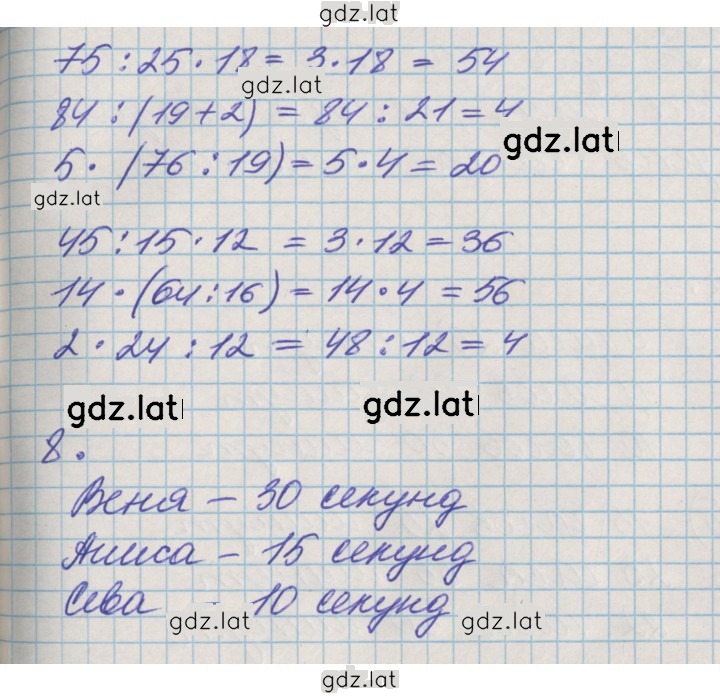 gdz.lat
75 : 25 · 18 = 3 · 18 = 54
gdz.lat
84 : (19 + 2) = 84 : 21 = 4
gdz.lat
5 · (76 : 19) = 5 · 4 = 20
gdz.lat
45 : 15 · 12 = 3 · 12 = 36
14 · (64 : 16) = 14 · 4 = 56
2 · 24 : 12 = 48 : 12 = 4
gdz.lat gdz.lat
8.
Веня – 30 секунд
Алиса – 15 секунд
Сева – 10 секунд
gdz.lat gdz.lat
gdz.lat